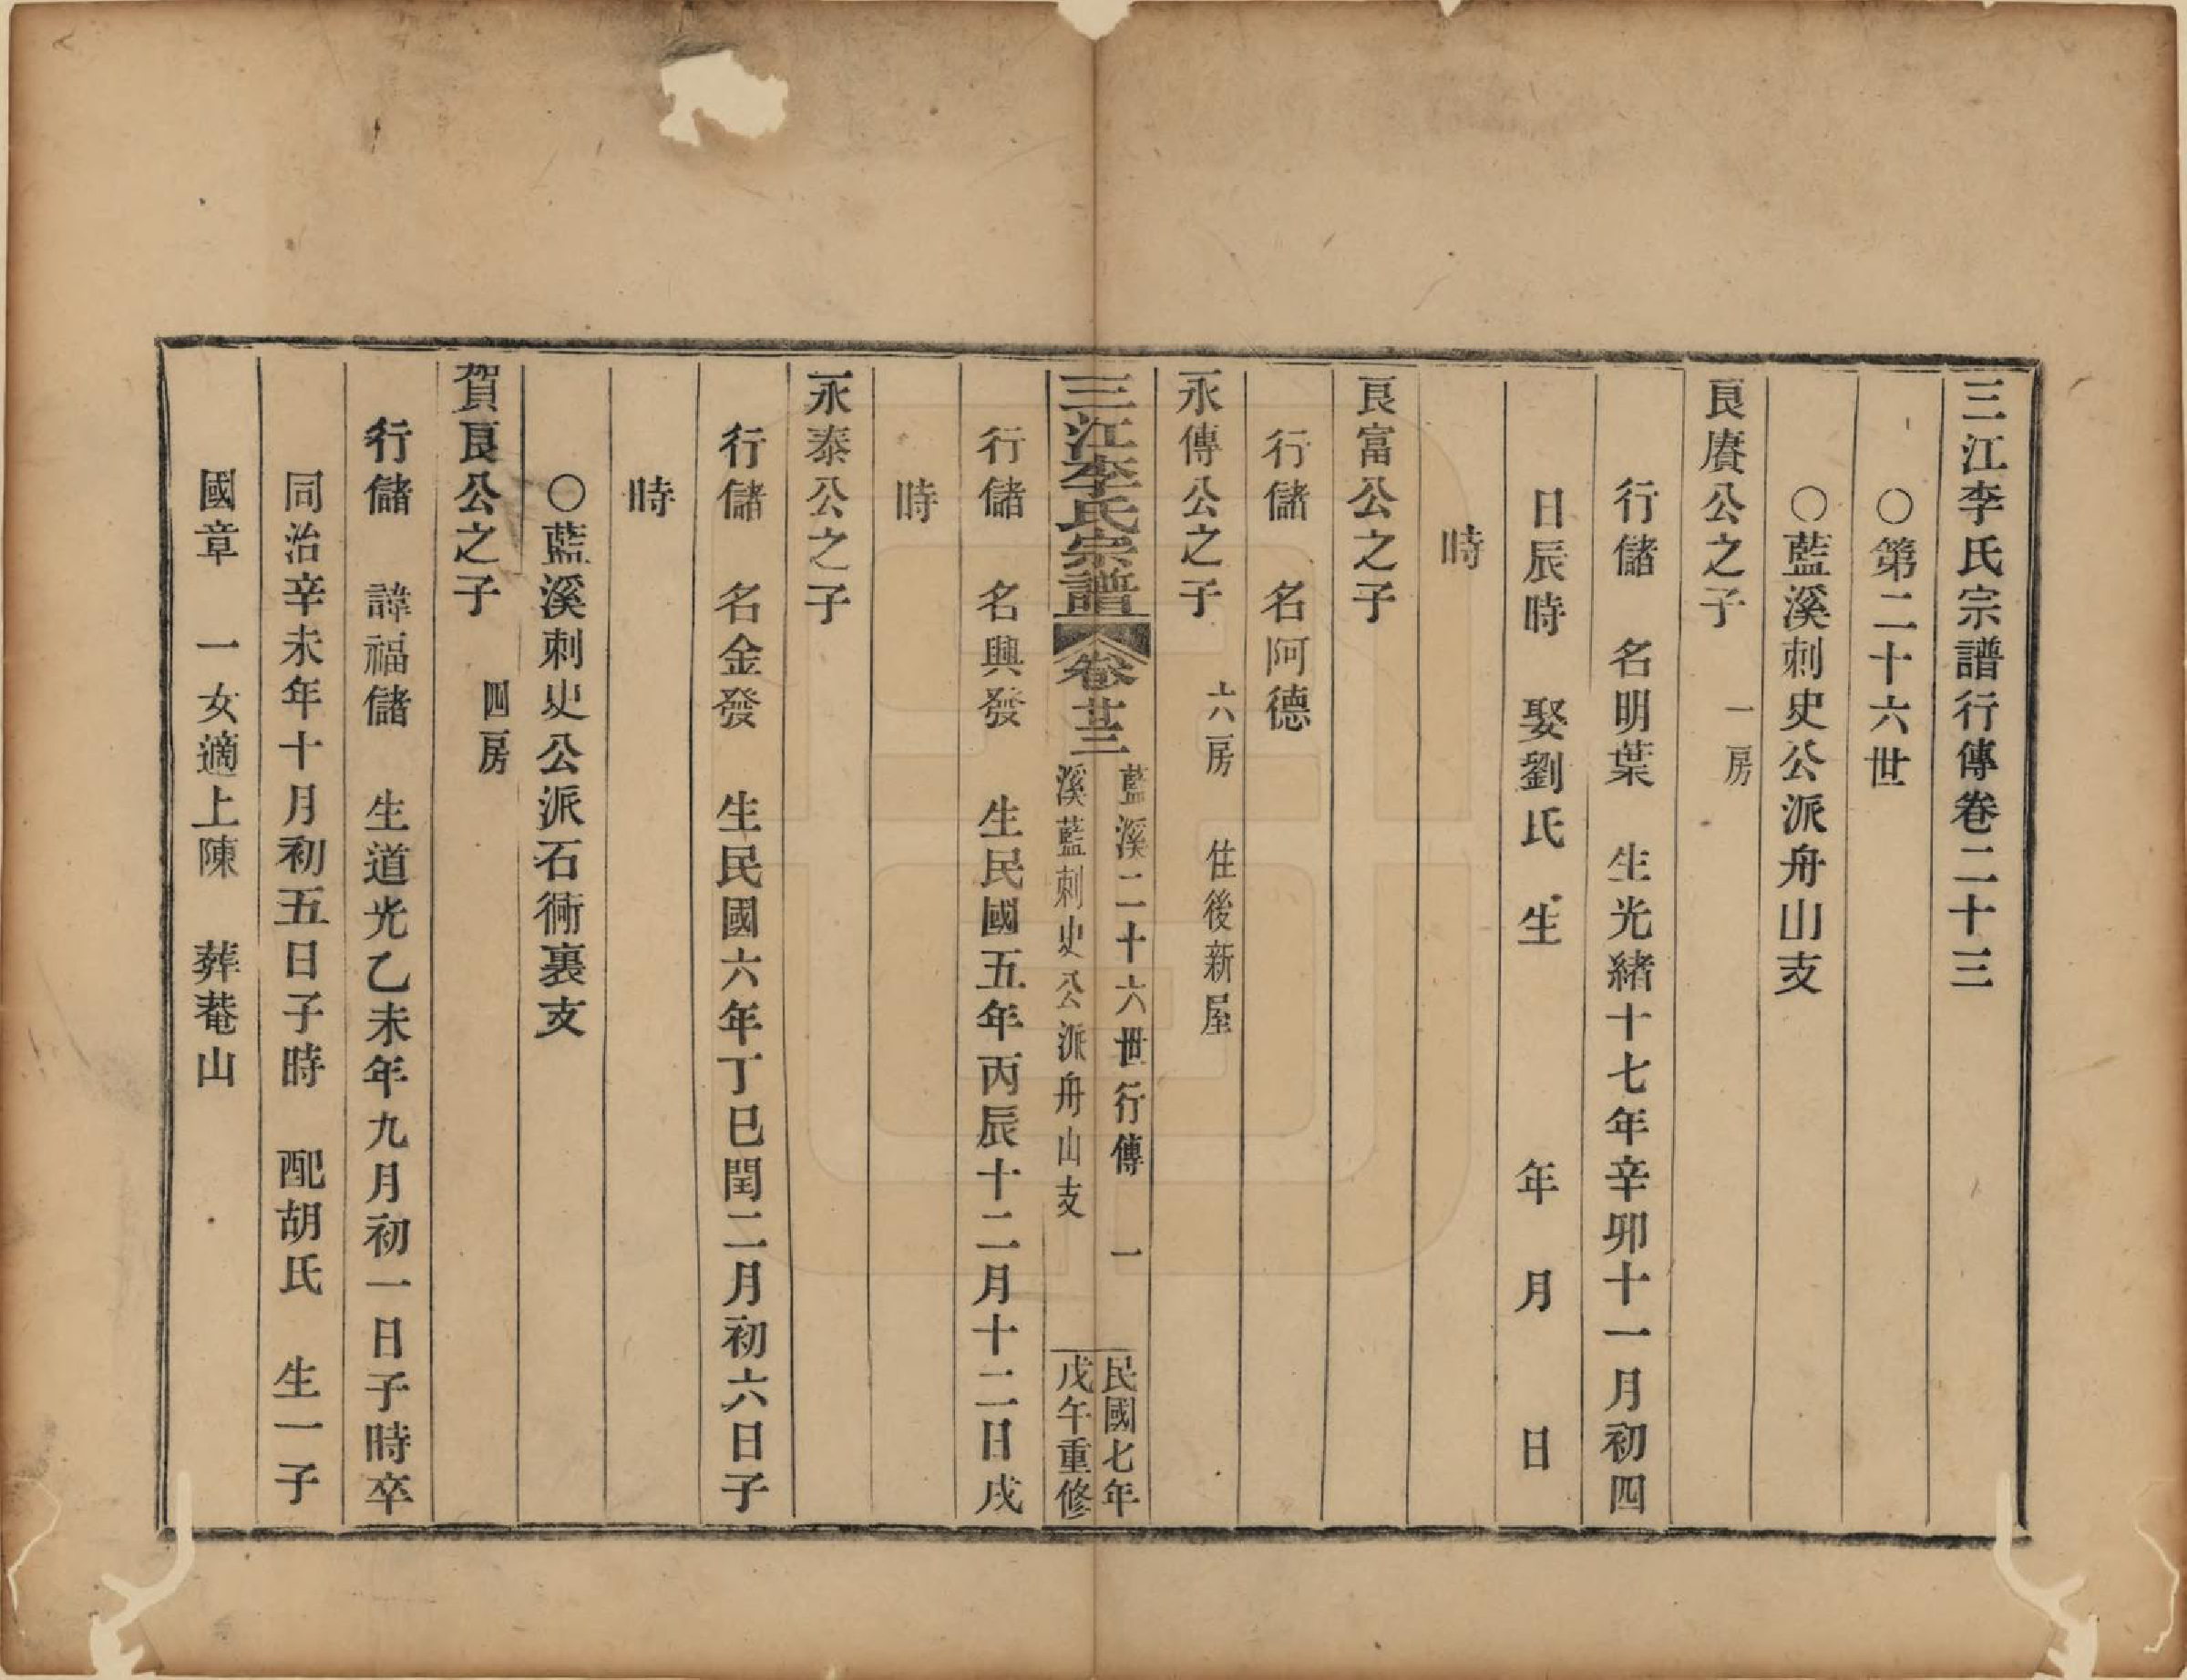 三江李氏宗譜行傳卷二十三
○第二十六世
○藍溪刺史公派舟山支
良賡公之子 一房
行儲 名明葉 生光緒十七年辛卯十一月初四
日辰時 娶劉氏 生 年 月 日
時
良富公之子
行儲 名阿德
永傳公之子 六房 住後新屋
三江李氏宗譜 卷廿三 藍溪二十六世行傳 一 民國七年
溪藍刺史公派舟山支 戊午重修
行儲 名興發 生民國五年丙辰十二月十二日戌
時
永泰公之子
行儲 名金發 生民國六年丁巳閏二月初六日子
時
○藍溪刺史公派石衕裏支
賀良公之子 四房
行儲 諱福儲 生道光乙未年九月初一日子時卒
同治辛未年十月初五日子時 配胡氏 生一子
國章 一女適上陳 葬菴山